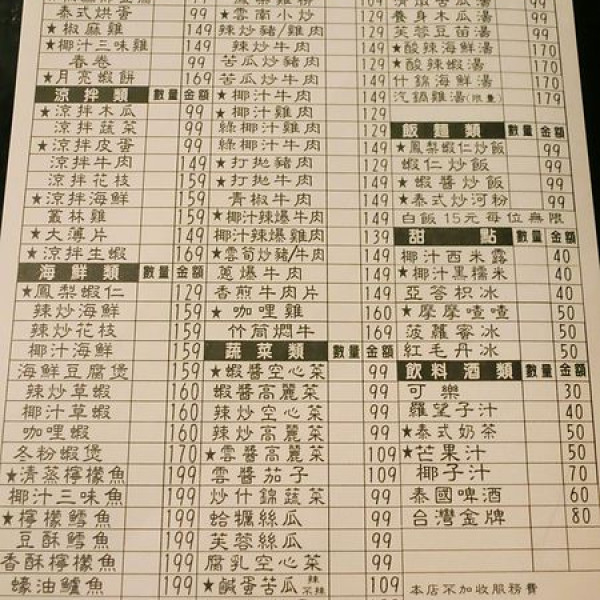 泰式烘蛋 99
★椒麻雞 149
★椰汁三味雞 149
春卷 99
★月亮蝦餅 169
涼拌類 數量 金額
★涼拌木瓜 99
涼拌蔬菜 99
★涼拌皮蛋 99
涼拌牛肉 149
涼拌花枝 159
★涼拌海鮮 159
叢林雞 149
★大薄片 149
★涼拌生蝦 169
海鮮類 數量 金額
★鳳梨蝦仁 129
辣炒海鮮 159
辣炒花枝 159
椰汁海鮮 159
海鮮豆腐煲 159
辣炒草蝦 160
椰汁草蝦 160
咖哩蝦 160
冬粉蝦煲 170
★清蒸檸檬魚 199
椰汁三味魚 199
★檸檬鱈魚 199
豆酥鱈魚 199
香酥檸檬魚 199
蠔油鱸魚 199
★雲南小炒 129
辣炒豬/雞肉 129
辣炒牛肉 149
苦瓜炒豬肉 129
苦瓜炒牛肉 149
★椰汁牛肉 149
★椰汁雞肉 129
綠椰汁雞肉 129
綠椰汁牛肉 149
★打拋豬肉 129
★打拋牛肉 149
青椒牛肉 149
★椰汁辣爆牛肉 149
椰汁辣爆雞肉 139
★雲筍炒豬/牛肉 149
蔥爆牛肉 149
香煎牛肉片 149
★咖哩雞 160
竹筒燜牛 169
蔬菜類 數量 金額
★蝦醬空心菜 99
蝦醬高麗菜 99
辣炒空心菜 99
辣炒高麗菜 99
★雲醬高麗菜 109
雲醬茄子 109
炒什錦蔬菜 99
蛤蠣絲瓜 99
芙蓉絲瓜 99
腐乳空心菜 99
★鹹蛋苦瓜 辣 不辣 109
養身木瓜湯 99
芙蓉豆苗湯 99
★酸辣海鮮湯 170
★酸辣蝦湯 170
什錦海鮮湯 170
汽鍋雞湯(限量) 179
飯麵類 數量 金額
★鳳梨蝦仁炒飯 99
蝦仁炒飯 99
★蝦醬炒飯 99
★泰式炒河粉 99
白飯15元每位無限
甜點 數量 金額
椰汁西米露 40
★椰汁黑糯米 40
亞答枳冰 40
★摩摩喳喳 50
菠蘿蜜冰 50
紅毛丹冰 50
飲料酒類 數量 金額
可樂 30
羅望子汁 40
★泰式奶茶 50
★芒果汁 50
椰子汁 70
泰國啤酒 60
台灣金牌 80
本店不加收服務費